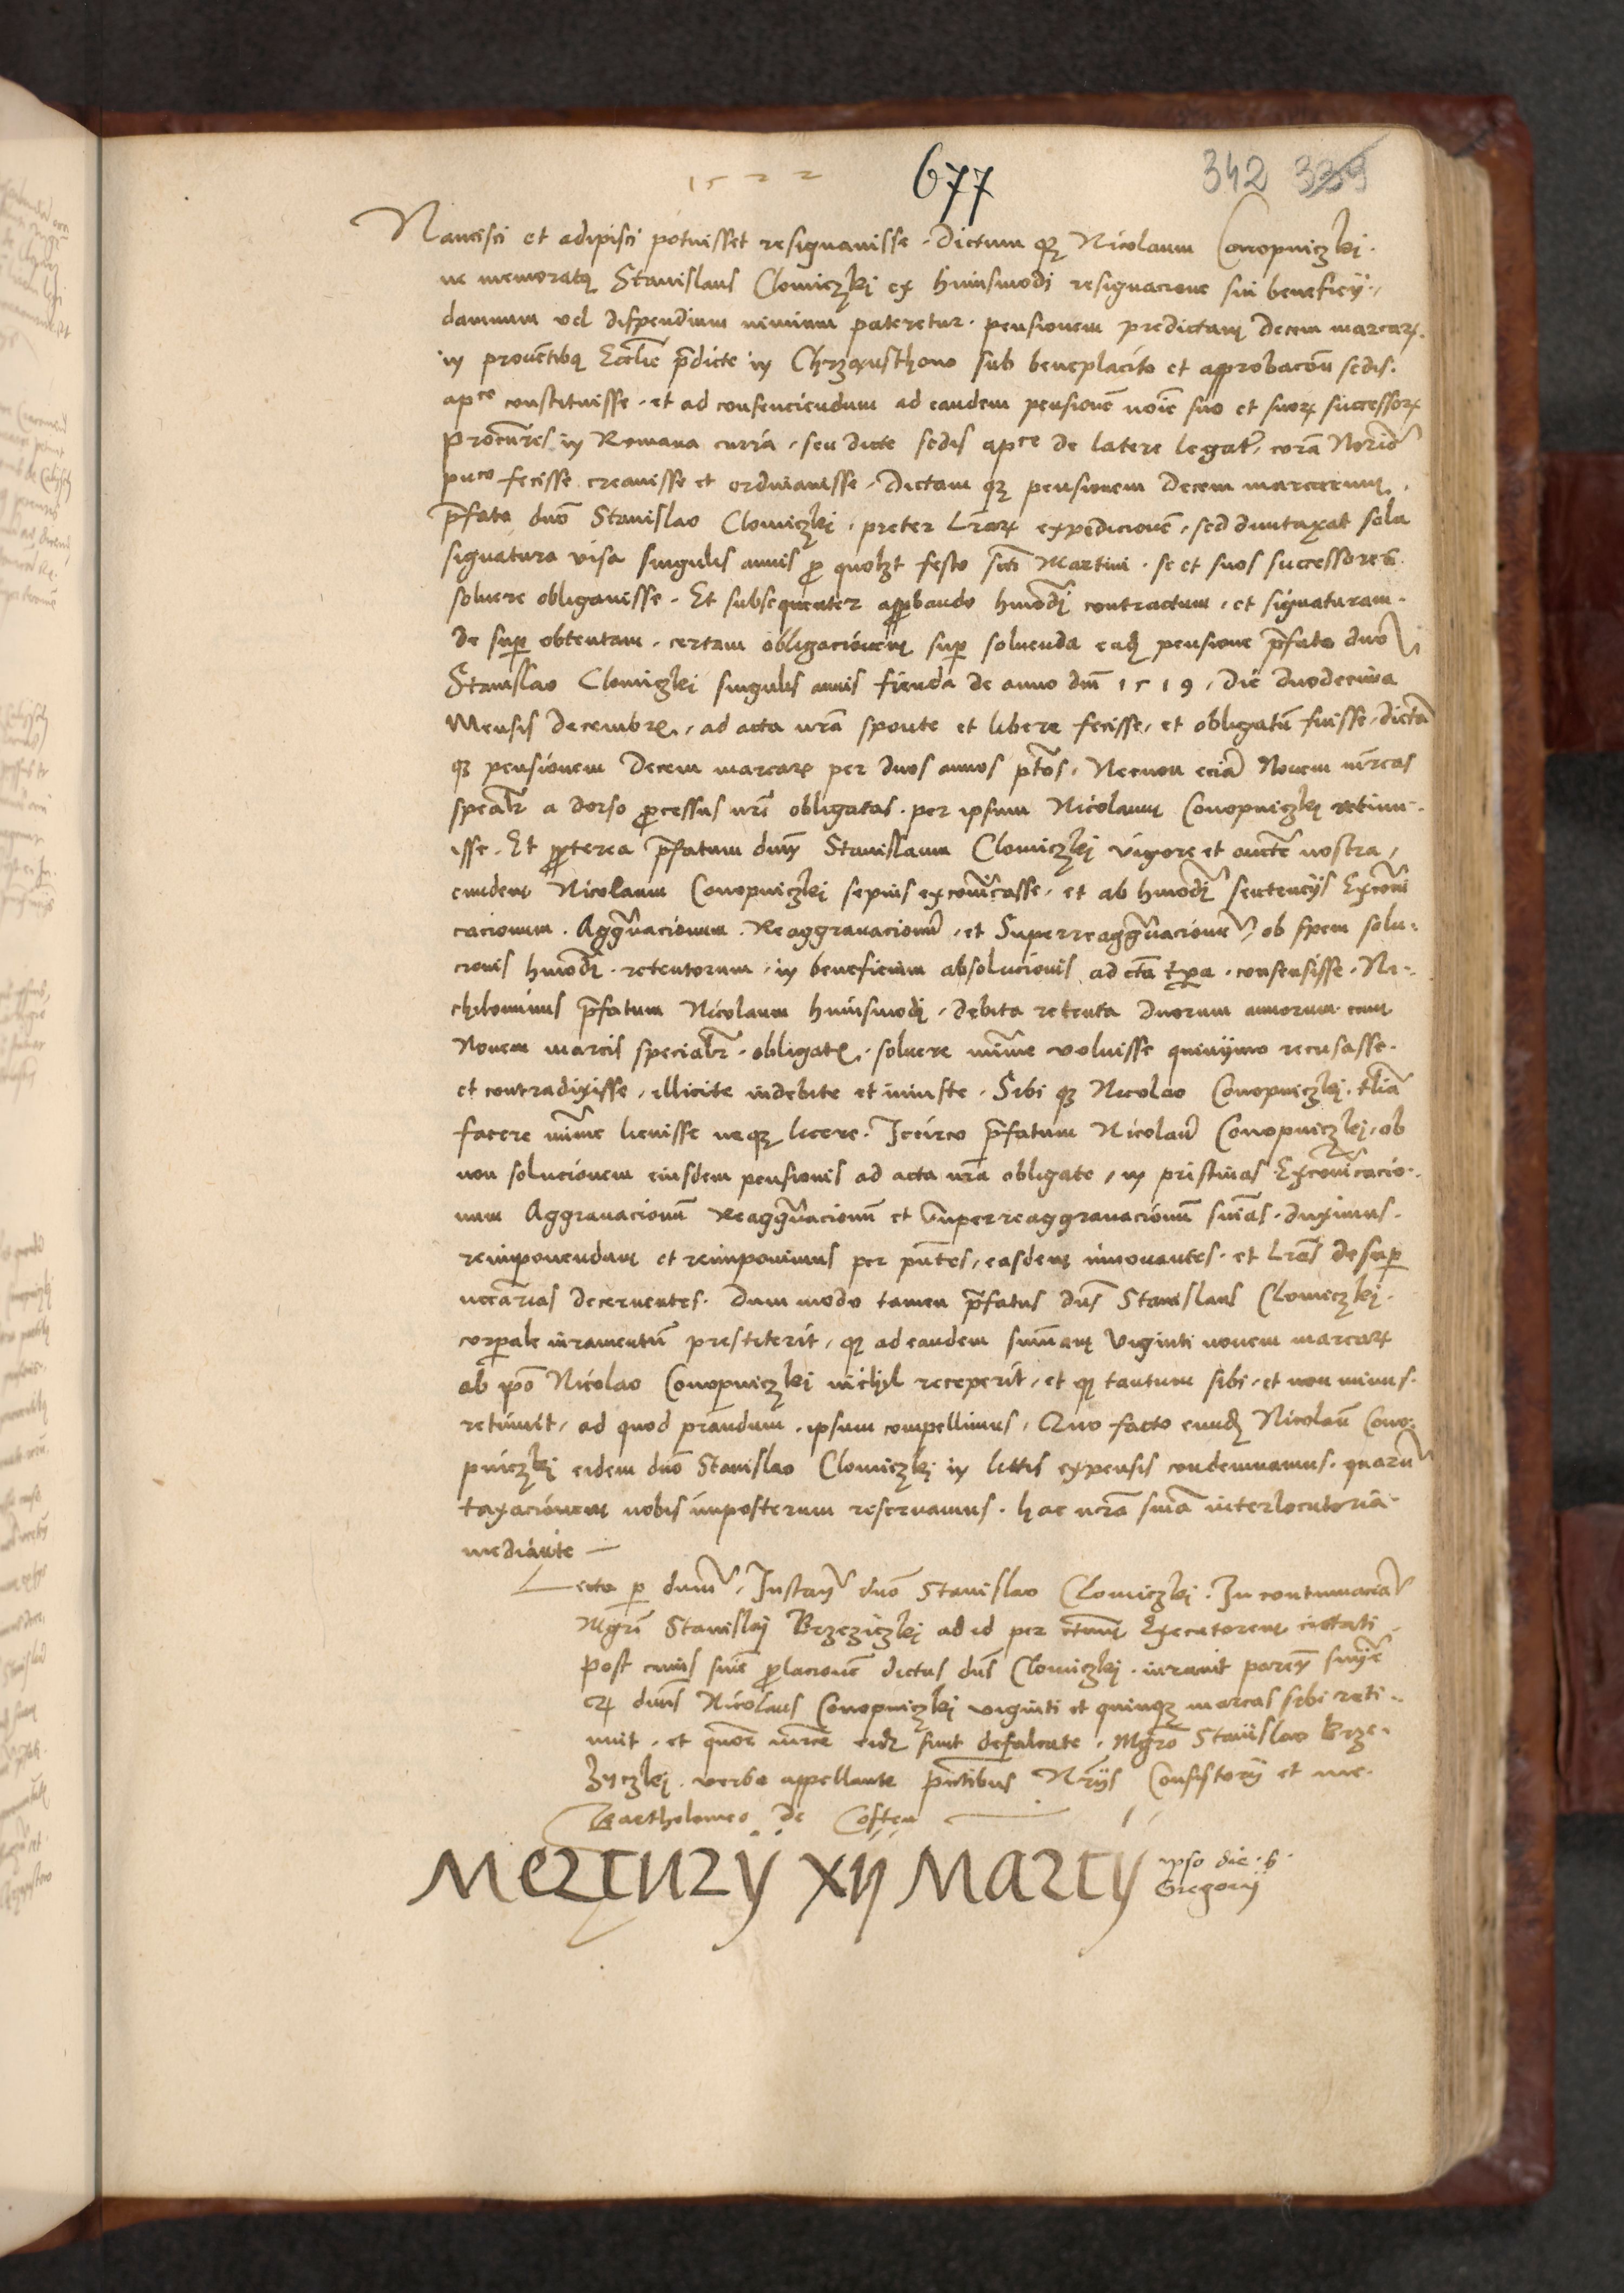 1522
677
342 339
Nancisci et adipisci potuisset resignauisse. Dictum qз Nicolaum Conopniczkj.
ne memoratꝯ Stanislaus Clomiczkj ex huiusmodi resignacione sui beneficÿ
damnum vel dispendium nimium pateretur. pensionem predictam Decem marcarꝝ.
in prouentibꝯ Ecclie p̄dicte in Chrzqnsthono sub beneplacito et approbacōn sedis.
apce constituisse. et ad consenciendum ad eandem pensionē noīe suo et suorꝝ successorꝝ
procur̄es in Romana curia, seu dicte sedis apce de latere legati, corā Norio
puco fecisse creauisse et ordinauisse. Dictam qз pensionem Decem marcarum,
p̄fato dnō Stanislao Clomiczkj, preter Lr̄arꝝ expedicionē, sed duntaxat sola
signatura visa singulis annis ꝓ quolzt festo scti Martini. se et suos successores
soluere obligauisse. Et subsequenter app̄bando hmōdj contractum, et signaturam
de sup̄ obtentam. certam obligacionem sup̄ soluenda eadꝫ pensione p̄fato dno
Stanislao Clomiczkj singulis annis fienda de anno dnī 1519, die duodecima
Mensis Decembrꝭ, ad acta nr̄a sponte et libere fecisse, et obligatū fuisse, dictā
qз pensionem Decem marcarꝝ per duos annos pt̄os, Necnon eciā Nouem mr̄cas
spealr̄ a dorso ꝓcessus nrī obligatas. per ipsum Nicolaum Conopniczkj retinu-
isse. Et ꝓpterea p̄fatum dnm̄ Stanislaum Clomiczkj vigore et aucte nostra,
eundem Nicolaum Conopniczkj sepius excom̄icasse, et ab hmōdj sentencÿs Excōni
cacionum. Aggr̄uacionum. Reaggrauacionū, et Superreaggr̄uacionū, ob spem solu-
cionis hmōdj. retentorum, in beneficium absolucionis ad cta tp̄a. consensisse. Ni-
chilominus p̄fatum Nicolaum huiusmodj, debita retenta duorum annorum cum
Nouem marcis specialr̄. obligatꝭ, soluere mīme voluisse quinÿmo recusasse.
et contradixisse, illicite indebite et iniuste. Sibi qз Nicolao Conopniczkj. tlīa
facere mīme licuisse neqз licere. Jccirco p̄fatum Nicolaū Conopniczkj, ob
non solucionem eiusdem pensionis ad acta nr̄a obligate, in pristinas Excōnicacio-
num Aggrauacionū Reaggr̄uacionū et Superreaggrauacionū snīas. duximus.
reimponendum et reimponimus per pn̄tes, easdem innouantes. et Lrās desup̄
necc̄arias decernentes. Dum modo tamen p̄fatus dns̄ Stanislaus Clomiczkj.
corporale iuramentū prestiterit, qꝫ ad eandem sum̄am viginti nouem marcarꝝ
ab ip̄o Nicolao Conopniczkj nichyl receperit, et qꝫ tantum sibi, et non minus.
retinuit, ad quod prandum. ipsum compellimus, Quo facto eundꝫ Nicolaū Cono-
pniczkj eidem dnō Stanislao Clomiczkj in littis expensis condemnamus. quarū
taxacionem nobis imposterum reseruamus. hac nrā snīa interlocutoria.
mediante —
Lecta p̄ dnum̄. Instan̄ dnō Stanislao Clomiczkj. In contumaciā
Mgri Stanislaj Brzeziczkj ad id per ctum̄ Executorem citati
post cuius snīe ꝓlacionē dictus dns̄ Clomiczkj. iurauit
dns̄ Nicolaus Conopniczkj viginti et quinqз marcas sibi reti-
nuit. et mr̄ce sunt defalcate. Mgro Stanislao Brze-
zyczkj. verbo appellante p̄ntibus Nrÿs Consistorÿ et me.
Bartholomeo de Costen
Mercurÿ xij Marcÿ ipso die .s.
Gregorÿ